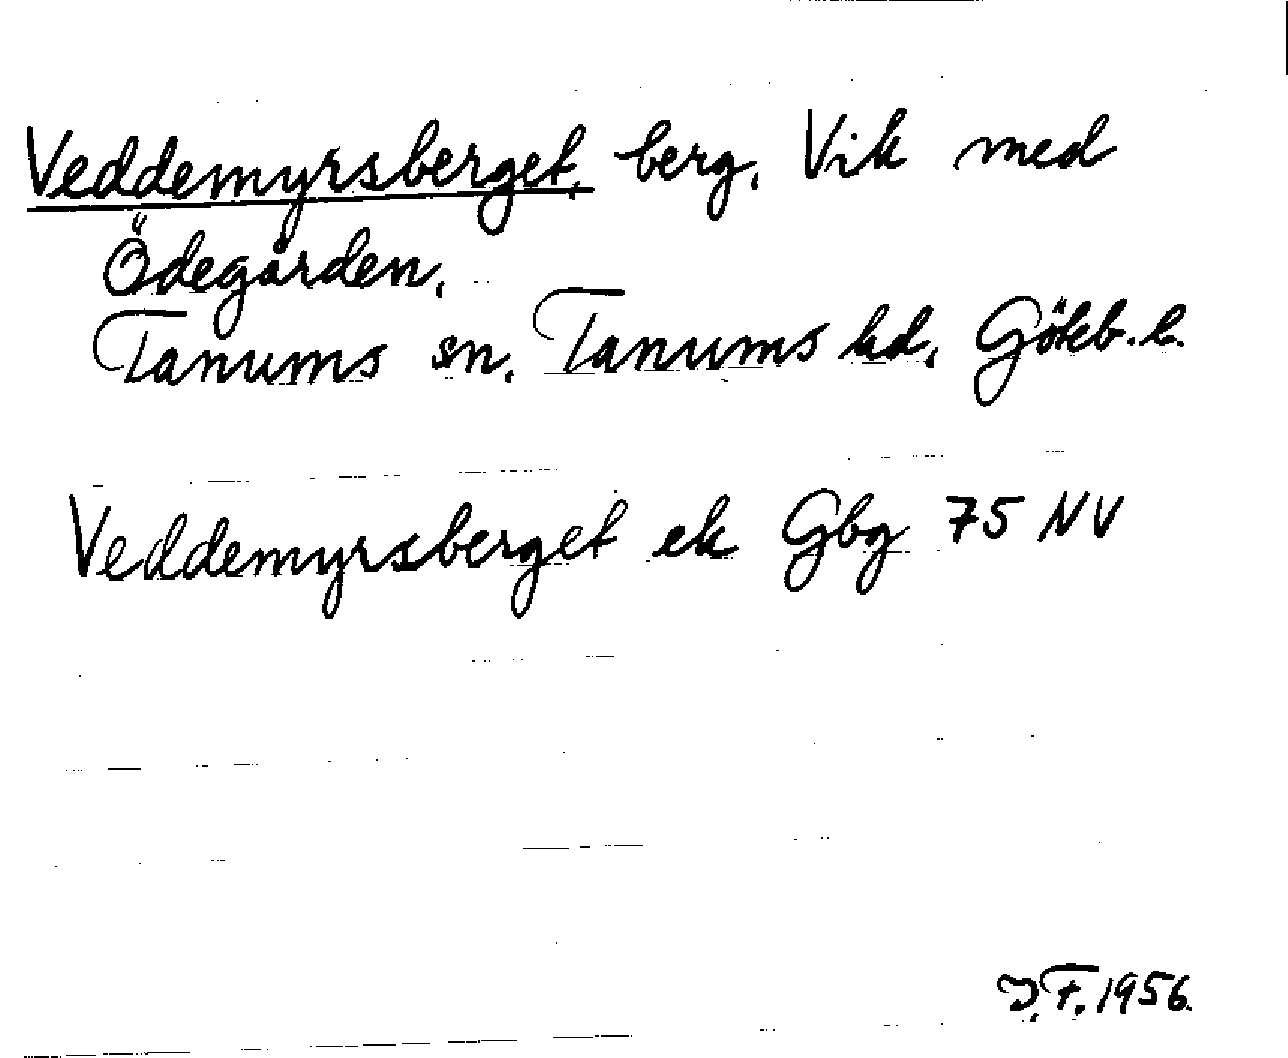 Veddemyrsberget, berg, Vik med
Ödegården,
Tanums sn, Tanums hd, Göteb. l.
Veddemyrsberget ek Gbg 75 NV
J.F. 1956.